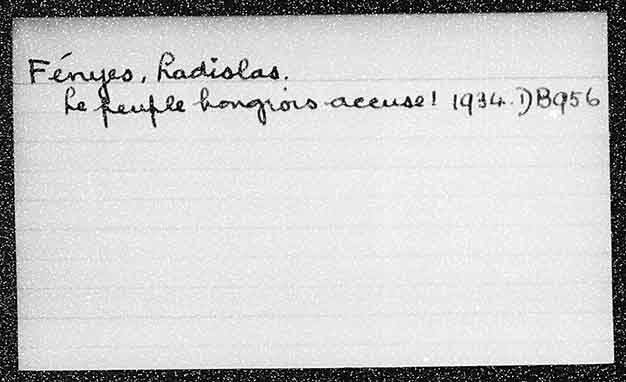 Fényes, Ladislas.
Le peuple hongrois accuse! 1934. DB956